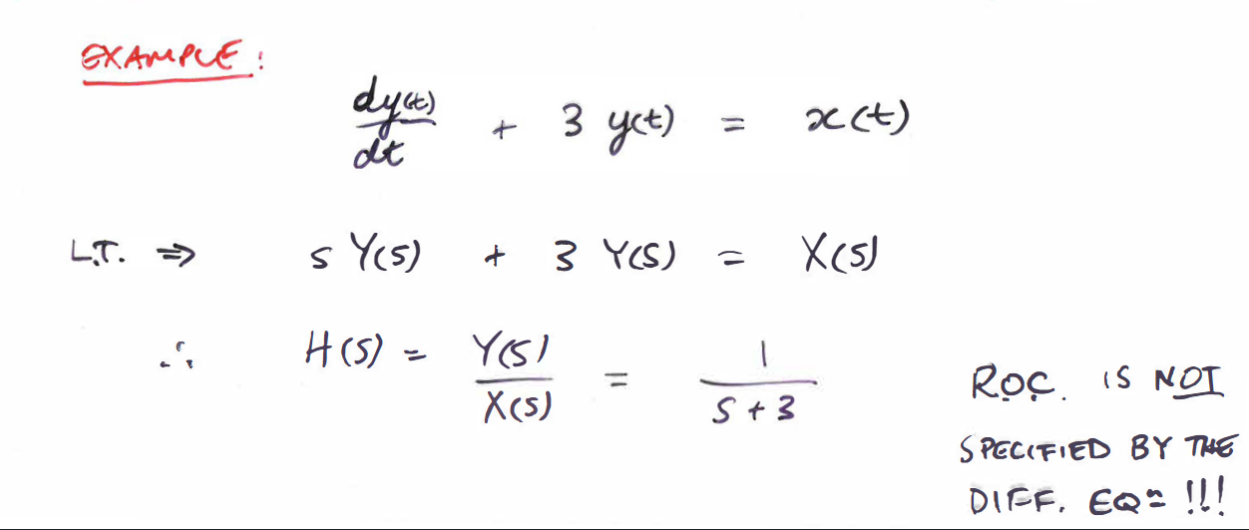 EXAMPLE:
dy(t)/dt + 3 y(t) = x(t)
L.T. ⇒ s Y(s) + 3 Y(s) = X(s)
∴ H(s) = Y(s)/X(s) = 1/(s+3)
R.O.C. IS NOT
SPECIFIED BY THE
DIFF. EQⁿ !!!